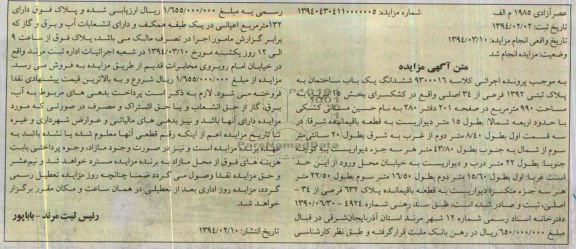 عصر آزادی ۱۹۸۵ م الف
شماره مزایده: ۱۳۹۴۰۴۳۰۴۱۱۰۰۰۰۰۵
تاریخ ثبت: ۱۳۹۴/۰۲/۰۲
تاریخ واقعی انجام مزایده: ۱۳۹۴/۰۳/۱۰
وضعیت مزایده: انجام شد
متن آگهی مزایده
به موجب پرونده اجرائی کلاسه ۹۳۰۰۰۱۶ ششدانگ یک باب ساختمان به
پلاک ثبتی ۱۳۹۲ فرعی از ۳۴ اصلی واقع در کشکسرای بخش ۱۵ تبریز به
مساحت ۹۹۰ مترمربع در صفحه ۲۰۱ دفتر ۲۸۰ به نام حسین سلطانی کشکی
با حدود اربعه شمالا: بطول ۱۵ متر دیواریست به قطعه باقیمانده شرقا: در
سه قسمت اول بطول ۸/۴۰ متر دوم از غرب به شرق بطول ۲۰ سانتی‌متر
سوم از شمال به جنوب بطول ۴۳/۸۰ متر هر سه جزء دیواریست به کوچه
جنوبا: بطول ۲۲ متر درب و دیواریست به خیابان محل ورود از این حد
است غربا: اول بطول ۱۵/۶۰ متر دوم بطول ۱۶/۵۰ متر سوم بطول ۲۲/۵۰ متر
هر سه جزء متکررا دیواریست به قطعه باقیمانده پلاک ۶۳۲ فرعی از ۳۴ -
اصلی، ثبت و صادر شده است، طبق سند رهنی شماره ۴۹۲۴ - ۱۳۹۰/۰۶/۳۰
دفترخانه اسناد رسمی شماره ۱۲ شهر مرند استان آذربایجان‌شرقی در قبال
مبلغ ۶۵۰/۰۰۰/۰۰۰ ریال در رهن بانک ملت قرار گرفته و طبق نظر کارشناسی
رسمی به مبلغ ۱/۶۵۵/۰۰۰/۰۰۰ ریال ارزیابی شده و پلاک فوق دارای
۱۳۲ مترمربع اعیانی در یک طبقه همکف و دارای انشعابات آب و برق و گاز که
برابر گزارش مامور اجرا در تصرف مالک می باشد، پلاک فوق از ساعت ۹
الی ۱۲ روز یکشنبه مورخ ۱۳۹۴/۰۳/۱۰ در شعبه اجرائیات اداره ثبت مرند واقع
در خیابان امام روبروی مخابرات قدیم از طریق مزایده به فروش می رسد.
مزایده از مبلغ ۱/۶۵۵/۰۰۰/۰۰۰ ریال شروع و به بالاترین قیمت پیشنهادی نقدا
فروخته می شود. لازم به ذکر است پرداخت بدهی های مربوط به آب،
برق، گاز از حق انشعاب و یا حق اشتراک و مصرف در صورتی که مورد
مزایده دارای آنها باشد و نیز بدهی های مالیاتی و عوارض شهرداری و غیره
تا تاریخ مزایده اعم از اینکه رقم قطعی آنها معلوم شده یا نشده باشد به
عهده برنده مزایده است و نیز در صورت وجود مازاد، وجوه پرداختی بابت
هزینه های فوق از محل مازاد به برنده مزایده مسترد خواهد شد و نیم‌عشر
و حق مزایده نقدا وصول می گردد ضمنا چنانچه روز مزایده تعطیل رسمی
گردد، مزایده روز اداری بعد از تعطیلی در همان ساعت و مکان مقرر برگزار
خواهد شد.
تاریخ انتشار: ۱۳۹۴/۰۲/۱۰
رئیس ثبت مرند - باباپور